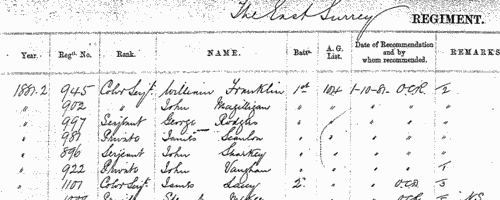 The East Surrey REGIMENT.
Year. Regtl. No. Rank. NAME. Battn. A. G. List. Date of Recommendation and by whom recommended. REMARKS
1881-2 945 Color Serjt. William Franklin 1st 104 1-10-81 O.C.R. 1/2
" 902 " John Magilligan " " " " "
" 997 Serjeant George Rodgers " " " " "
" 987 Private James Scanlon " " " "
" 896 Serjeant John Sharkey " " " "
" 922 Private John Vaughan " " " "
" 1101 Color Serjt. James Lacey 2. " " O.C.R.